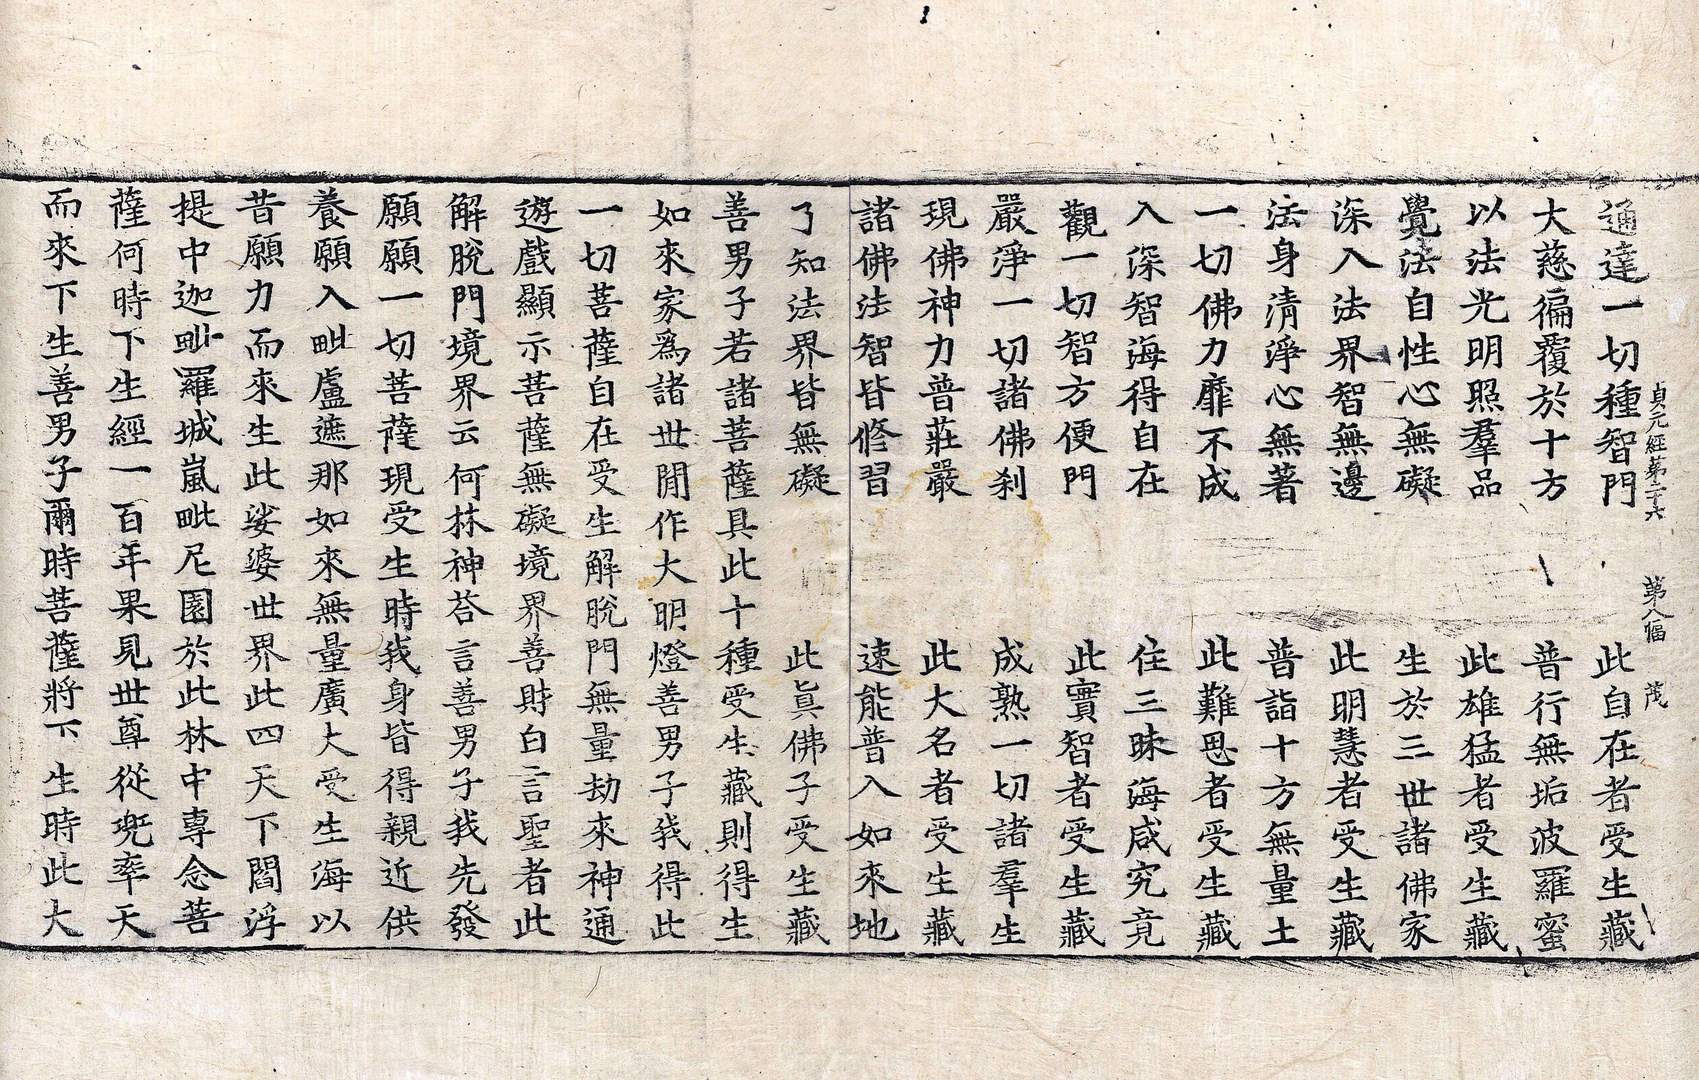 通達一切種智門　此自在者受生藏
貞元經第二十六　第八幅　茂
大慈徧覆於十方　普行無垢波羅蜜
以法光明照羣品　此雄猛者受生藏
覺法自性心無礙　生於三世諸佛家
深入法界智無邊　此明慧者受生藏
法身清淨心無著　普詣十方無量土
一切佛力靡不成　此難思者受生藏
入深智海得自在　住三昧海咸究竟
觀一切智方便門　此實智者受生藏
嚴淨一切諸佛刹　成熟一切諸羣生
現佛神力普莊嚴　此大名者受生藏
諸佛法智皆修習　速能普入如來地
了知法界皆無礙　此眞佛子受生藏
善男子若諸菩薩具此十種受生藏則得生
如來家爲諸世閒作大明燈善男子我得此
一切菩薩自在受生解脫門無量劫來神通
遊戲顯示菩薩無礙境界善財白言聖者此
解脫門境界云何林神荅言善男子我先發
願願一切菩薩現受生時我身皆得親近供
養願入毗盧遮那如來無量廣大受生海以
昔願力而來生此娑婆世界此四天下閻浮
提中迦毗羅城嵐毗尼園於此林中專念菩
薩何時下生經一百年果見世尊從兜率天
而來下生善男子爾時菩薩將下生時此大